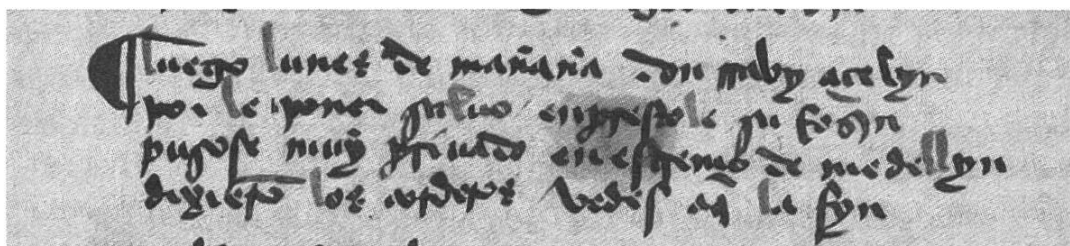 ¶ luego lunes de mañana don rraby açelyn
por le poner saluo enprestole su rroçyn
pusose muy priuado en estremo de medellyn
dixierō los corderos vedes aq̃ la fyn